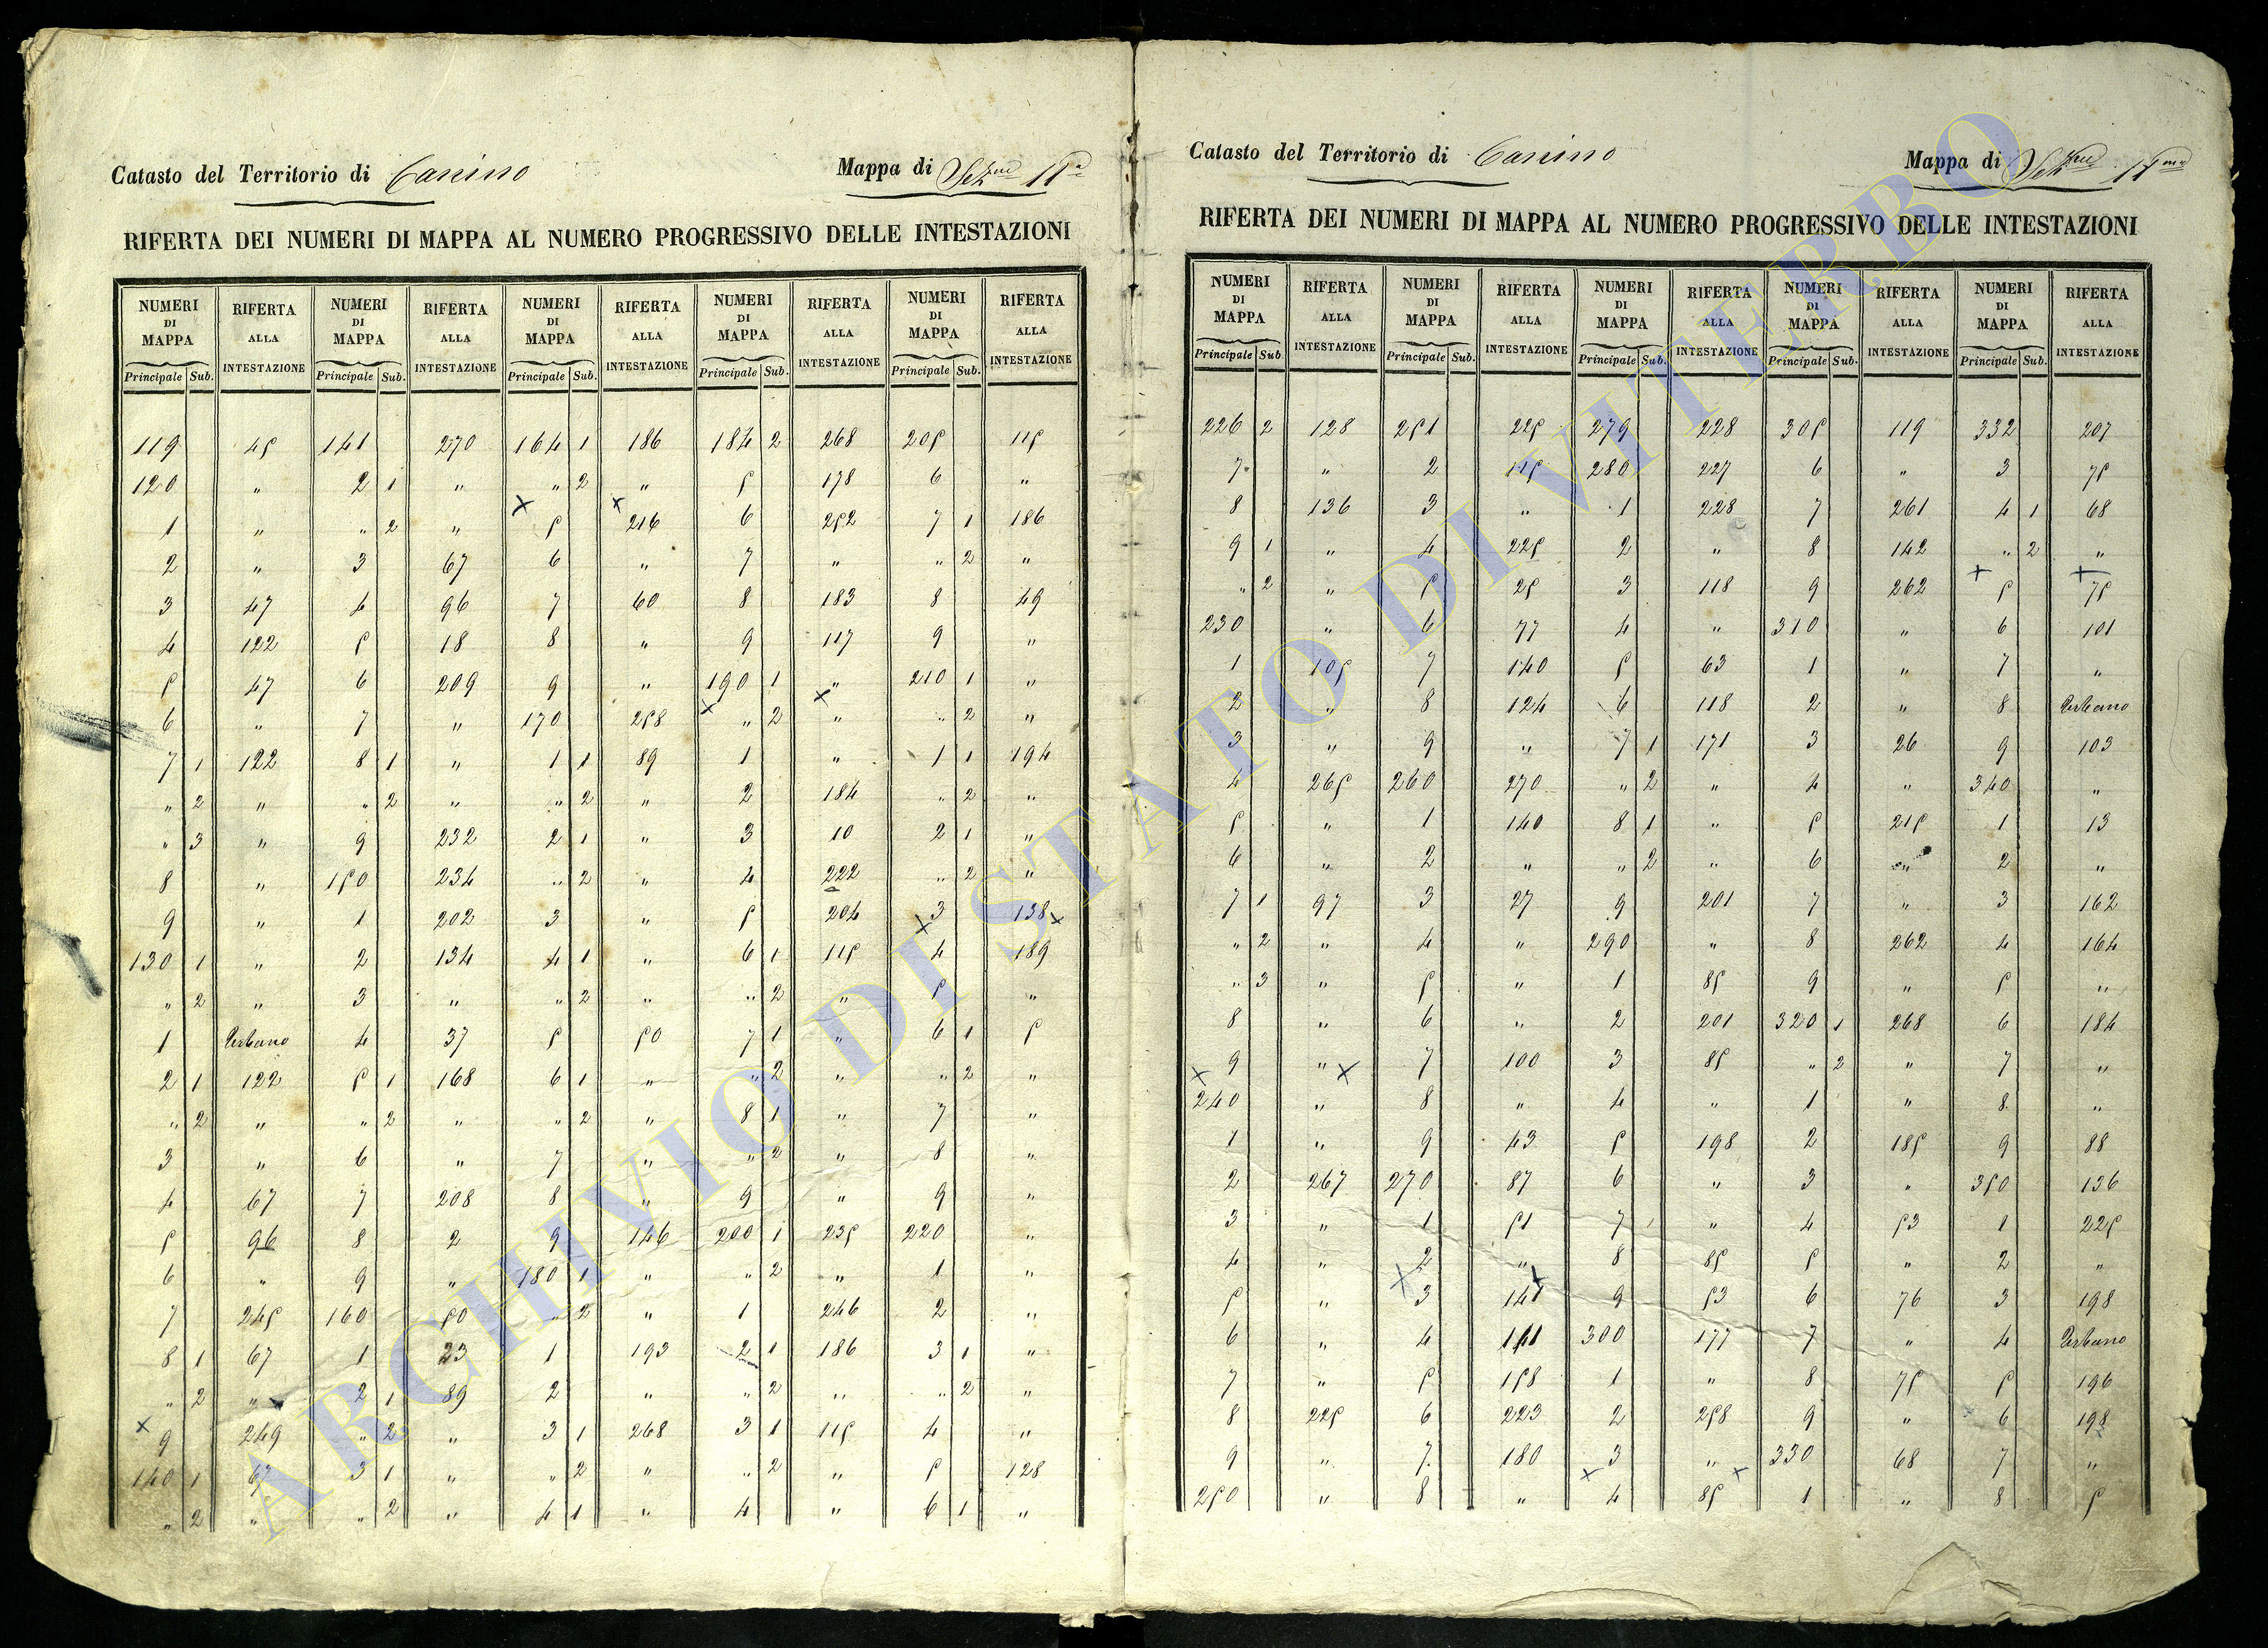 Catasto del Territorio di Canino Mappa di Sezne
RIFERTA DEI NUMERI DI MAPPA AL NUMERO PROGRESSIVO DELLE INTESTAZIONI
NUMERI DI MAPPA RIFERTA ALLA INTESTAZIONE NUMERI DI MAPPA RIFERTA ALLA INTESTAZIONE NUMERI DI MAPPA RIFERTA ALLA INTESTAZIONE NUMERI DI MAPPA RIFERTA ALLA INTESTAZIONE NUMERI DI MAPPA RIFERTA ALLA INTESTAZIONE
Principale Sub. Principale Sub. Principale Sub. Principale Sub. Principale Sub.
119 45 141 270 164 1 186 184 2 268 205 115
120 " 2 1 " " 2 " 5 178 6 "
1 " " 2 " 5 216 6 252 7 1 186
2 " 3 67 6 " 7 " " 2 "
3 47 4 96 7 60 8 183 8 49
4 122 5 18 8 " 9 117 9 "
5 47 6 209 9 " 190 1 " 210 1 "
6 " 7 " 170 258 " 2 " " 2 "
7 1 122 8 1 " 1 1 89 1 " 1 1 194
" 2 " " 2 " " 2 " 2 184 " 2 "
" 3 " 9 232 2 1 " 3 10 2 1 "
8 " 150 234 " 2 " 4 222 " 2 "
9 " 1 202 3 " 5 204 3 138
130 1 " 2 134 4 1 " 6 1 115 4 189
" 2 " 3 " " 2 " " 2 " 5 "
1 Urbano 4 37 5 50 7 1 " 6 1 5
2 1 122 5 1 168 6 1 " " 2 " " 2 "
" 2 " " 2 " " 2 " 8 1 " 7 "
3 " 6 " 7 " " 2 " 8 "
4 67 7 208 8 " 9 " 9 "
5 96 8 2 9 146 200 1 235 220 "
6 " 9 " 180 1 " " 2 " 1 "
7 245 160 50 " 2 " 1 246 2 "
8 1 67 1 23 1 193 2 1 186 3 1 "
" 2 " 2 1 89 2 " " 2 " " 2 "
9 249 " 2 " 3 1 268 3 1 115 4 "
140 1 67 3 1 " " 2 " " 2 " 5 128
" 2 " " 2 " 4 1 " 4 " 6 1 "
Catasto del Territorio di Canino Mappa di Sezne
RIFERTA DEI NUMERI DI MAPPA AL NUMERO PROGRESSIVO DELLE INTESTAZIONI
NUMERI DI MAPPA RIFERTA ALLA INTESTAZIONE NUMERI DI MAPPA RIFERTA ALLA INTESTAZIONE NUMERI DI MAPPA RIFERTA ALLA INTESTAZIONE NUMERI DI MAPPA RIFERTA ALLA INTESTAZIONE NUMERI DI MAPPA RIFERTA ALLA INTESTAZIONE
Principale Sub. Principale Sub. Principale Sub. Principale Sub. Principale Sub.
226 2 128 251 225 279 228 305 119 332 207
7 " 2 115 280 227 6 " 3 75
8 136 3 " 1 228 7 261 4 1 68
9 1 " 4 225 2 " 8 142 " 2 "
" 2 " 5 25 3 118 9 262 5 75
230 " 6 77 4 " 310 " 6 101
1 105 7 140 5 63 1 " 7 "
2 " 8 124 6 118 2 " 8 Urbano
3 " 9 " 7 1 171 3 26 9 103
4 265 260 270 " 2 " 4 " 340 "
5 " 1 140 8 1 " 5 215 1 13
6 " 2 " " 2 " 6 " 2 "
7 1 97 3 27 9 201 7 " 3 162
" 2 " 4 " 290 " 8 262 4 164
" 3 " 5 " 1 85 9 " 5 "
8 " 6 " 2 201 320 1 268 6 184
9 " 7 100 3 85 " 2 " 7 "
240 " 8 " 4 " 1 " 8 "
1 " 9 43 5 198 2 185 9 88
2 267 270 87 6 " 3 " 350 136
3 " 1 51 7 " 4 53 1 225
4 " 2 " 8 85 5 " 2 "
5 " 3 141 9 53 6 76 3 198
6 " 4 141 300 177 7 " 4 Urbano
7 " 5 158 1 " 8 75 5 196
8 225 6 223 2 258 9 " 6 198
9 " 7 180 3 " 330 68 7 "
250 " 8 " 4 85 1 " 8 5
ARCHIVIO DI STATO DI VITERBO